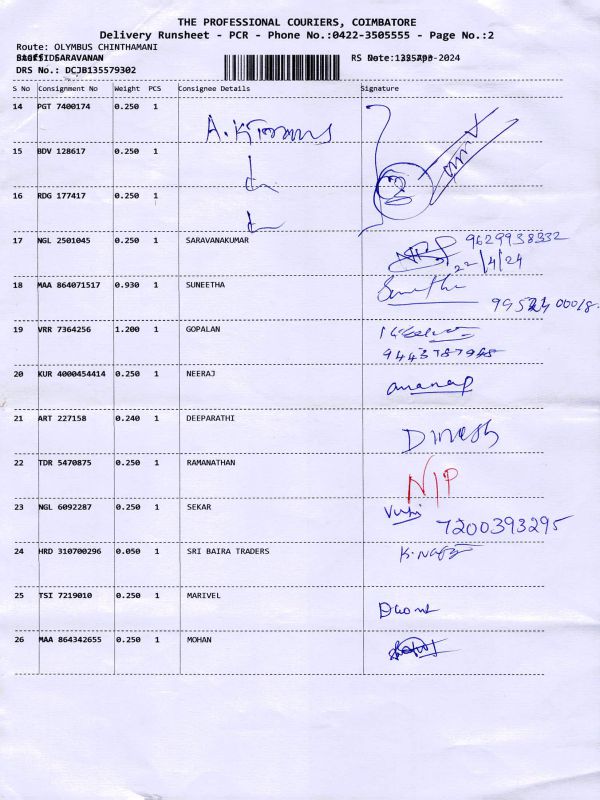 THE PROFESSIONAL COURIERS, COIMBATORE
Delivery Runsheet - PCR - Phone No.:0422-3505555 - Page No.:2
Route: OLYMBUS CHINTHAMANI
SARAVANAN
DRS No.: DCJB135579302
S No Consignment No Weight PCS Consignee Details Signature
14 PGT 7400174 0.250 1
15 BDV 128617 0.250 1
16 RDG 177417 0.250 1
17 NGL 2501045 0.250 1 SARAVANAKUMAR 9629938332
22/4/24
18 MAA 864071517 0.930 1 SUNEETHA Suneetha
19 VRR 7364256 1.200 1 GOPALAN
9443787948
20 KUR 4000454414 0.250 1 NEERAJ
21 ART 227158 0.240 1 DEEPARATHI Dinesh
22 TDR 5470875 0.250 1 RAMANATHAN N/P
23 NGL 6092287 0.250 1 SEKAR
7200393295
24 HRD 310700296 0.050 1 SRI BAIRA TRADERS
25 TSI 7219010 0.250 1 MARIVEL
26 MAA 864342655 0.250 1 MOHAN